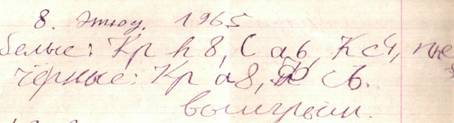 8. Этюд. 1965
Белые: Кр h8, С a6, К c4,
чёрные: Кр a8,
Выигрыш.